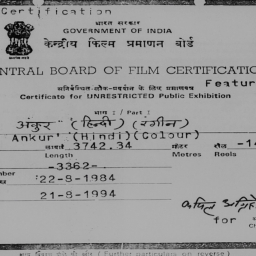 Certification
भारत सरकार
GOVERNMENT OF INDIA
केन्द्रीय फिल्म प्रमाणन बोर्ड
NTRAL BOARD OF FILM CERTIFICATIO
Featur
अनिर्बन्धित-लोक-प्रदर्शन के लिए प्रमाणपत्र
Certificate for UNRESTRICTED Public Exhibition
भाग : / Part :
अंकुर" (हिन्दी) (रंगीन)
Ankur' (Hindi)(Colour)
लम्बाई 3742.34 मीटर रील -14
Length Metres Reels
-3362-
mber
22-8-1984
21-8-1994
for